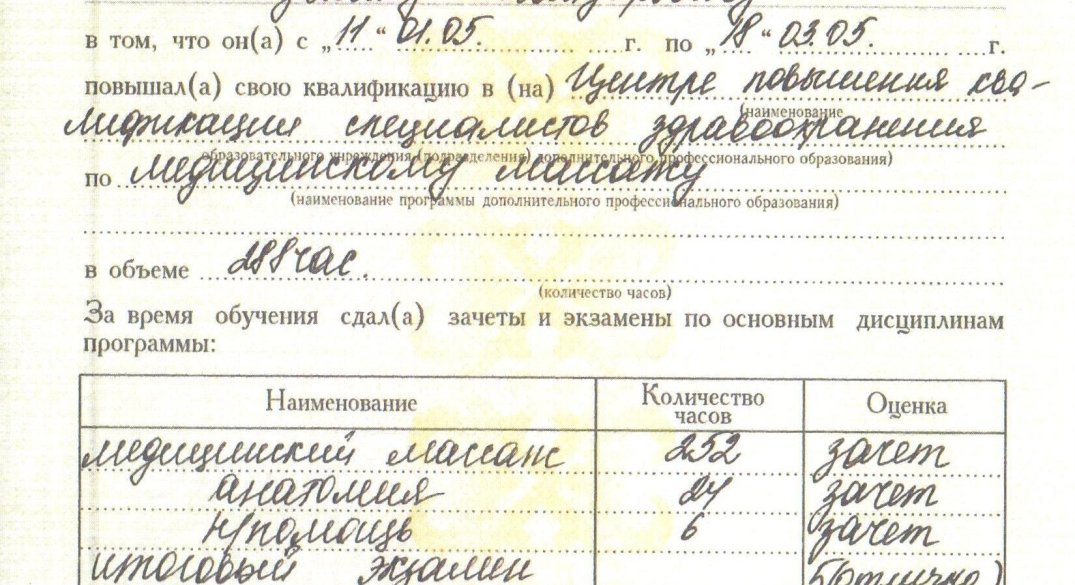 в том, что он(а) с „11“ 01.05. г. по „18“ 03.05. г.
повышал(а) свою квалификацию в (на) Центре повышения ква-
(наименование
лификации специалистов здравоохранения
образовательного учреждения (подразделения) дополнительного профессионального образования)
по медицинскому массажу
(наименование программы дополнительного профессионального образования)
в объеме 288 час.
(количество часов)
За время обучения сдал(а) зачеты и экзамены по основным дисциплинам
программы:
Наименование Количество часов Оценка
медицинский массаж 252 зачет
анатомия 24 зачет
н/помощь 6 зачет
итоговый экзамен 5(отлично)